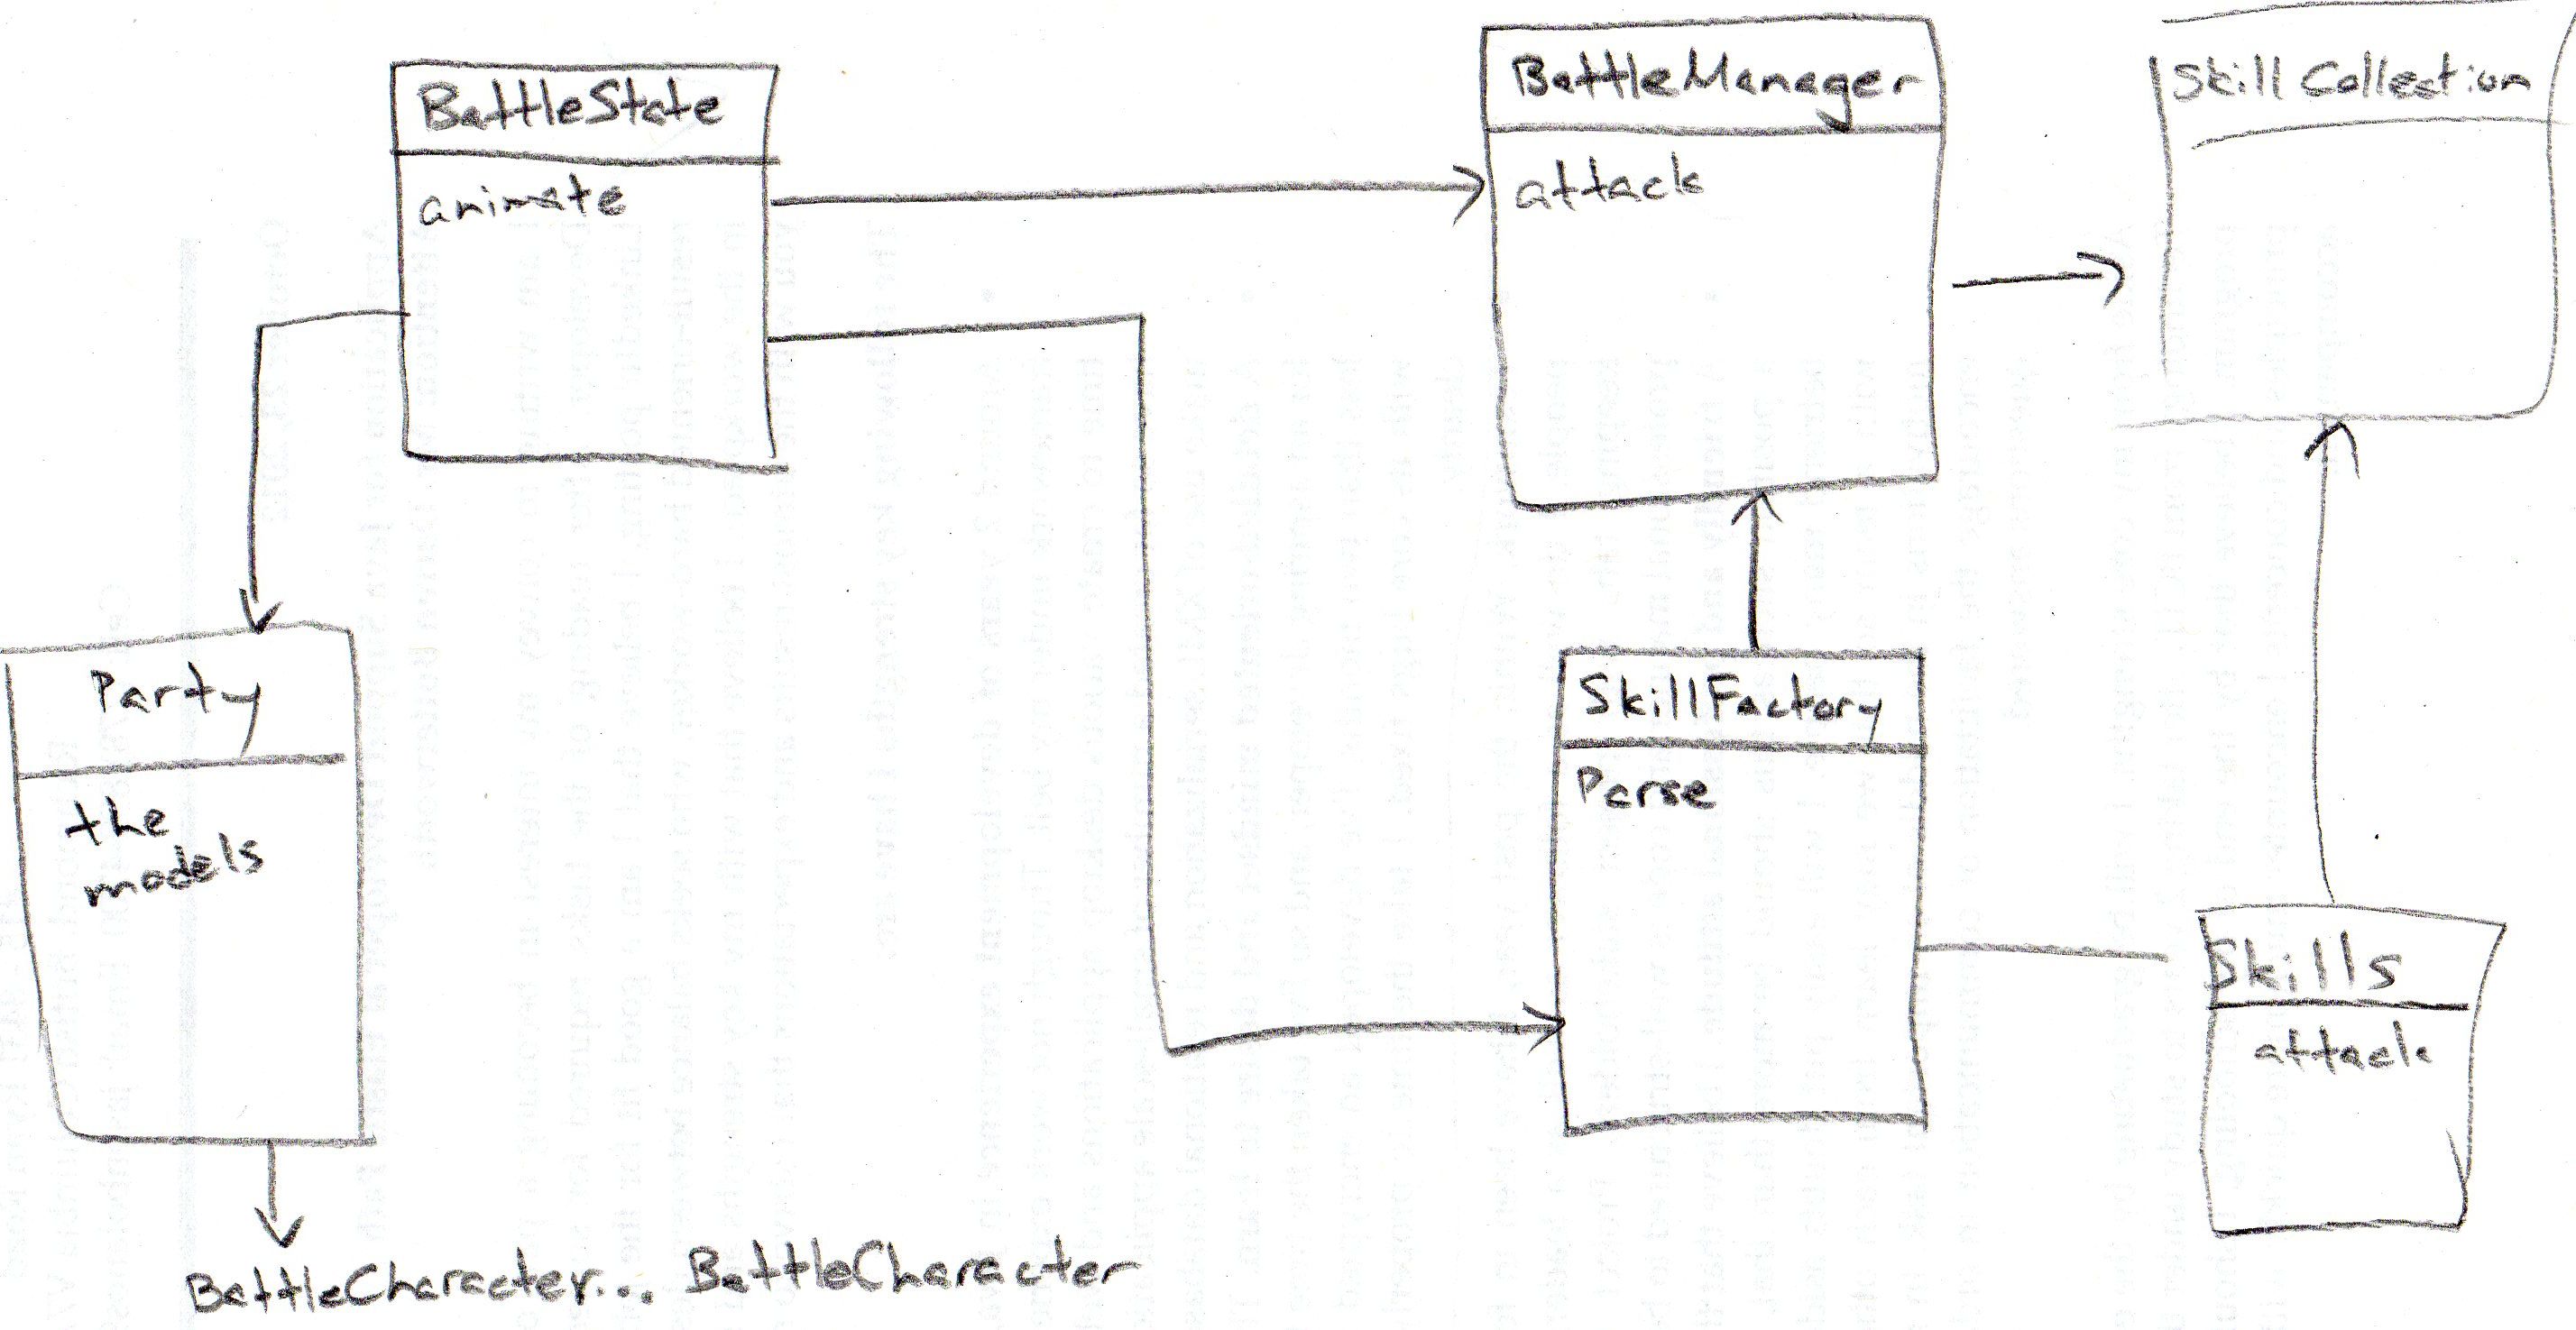 BattleState
animate
BattleManager
attack
Skill Collection
Party
the
models
SkillFactory
Parse
Skills
attack
BattleCharacter... BattleCharacter